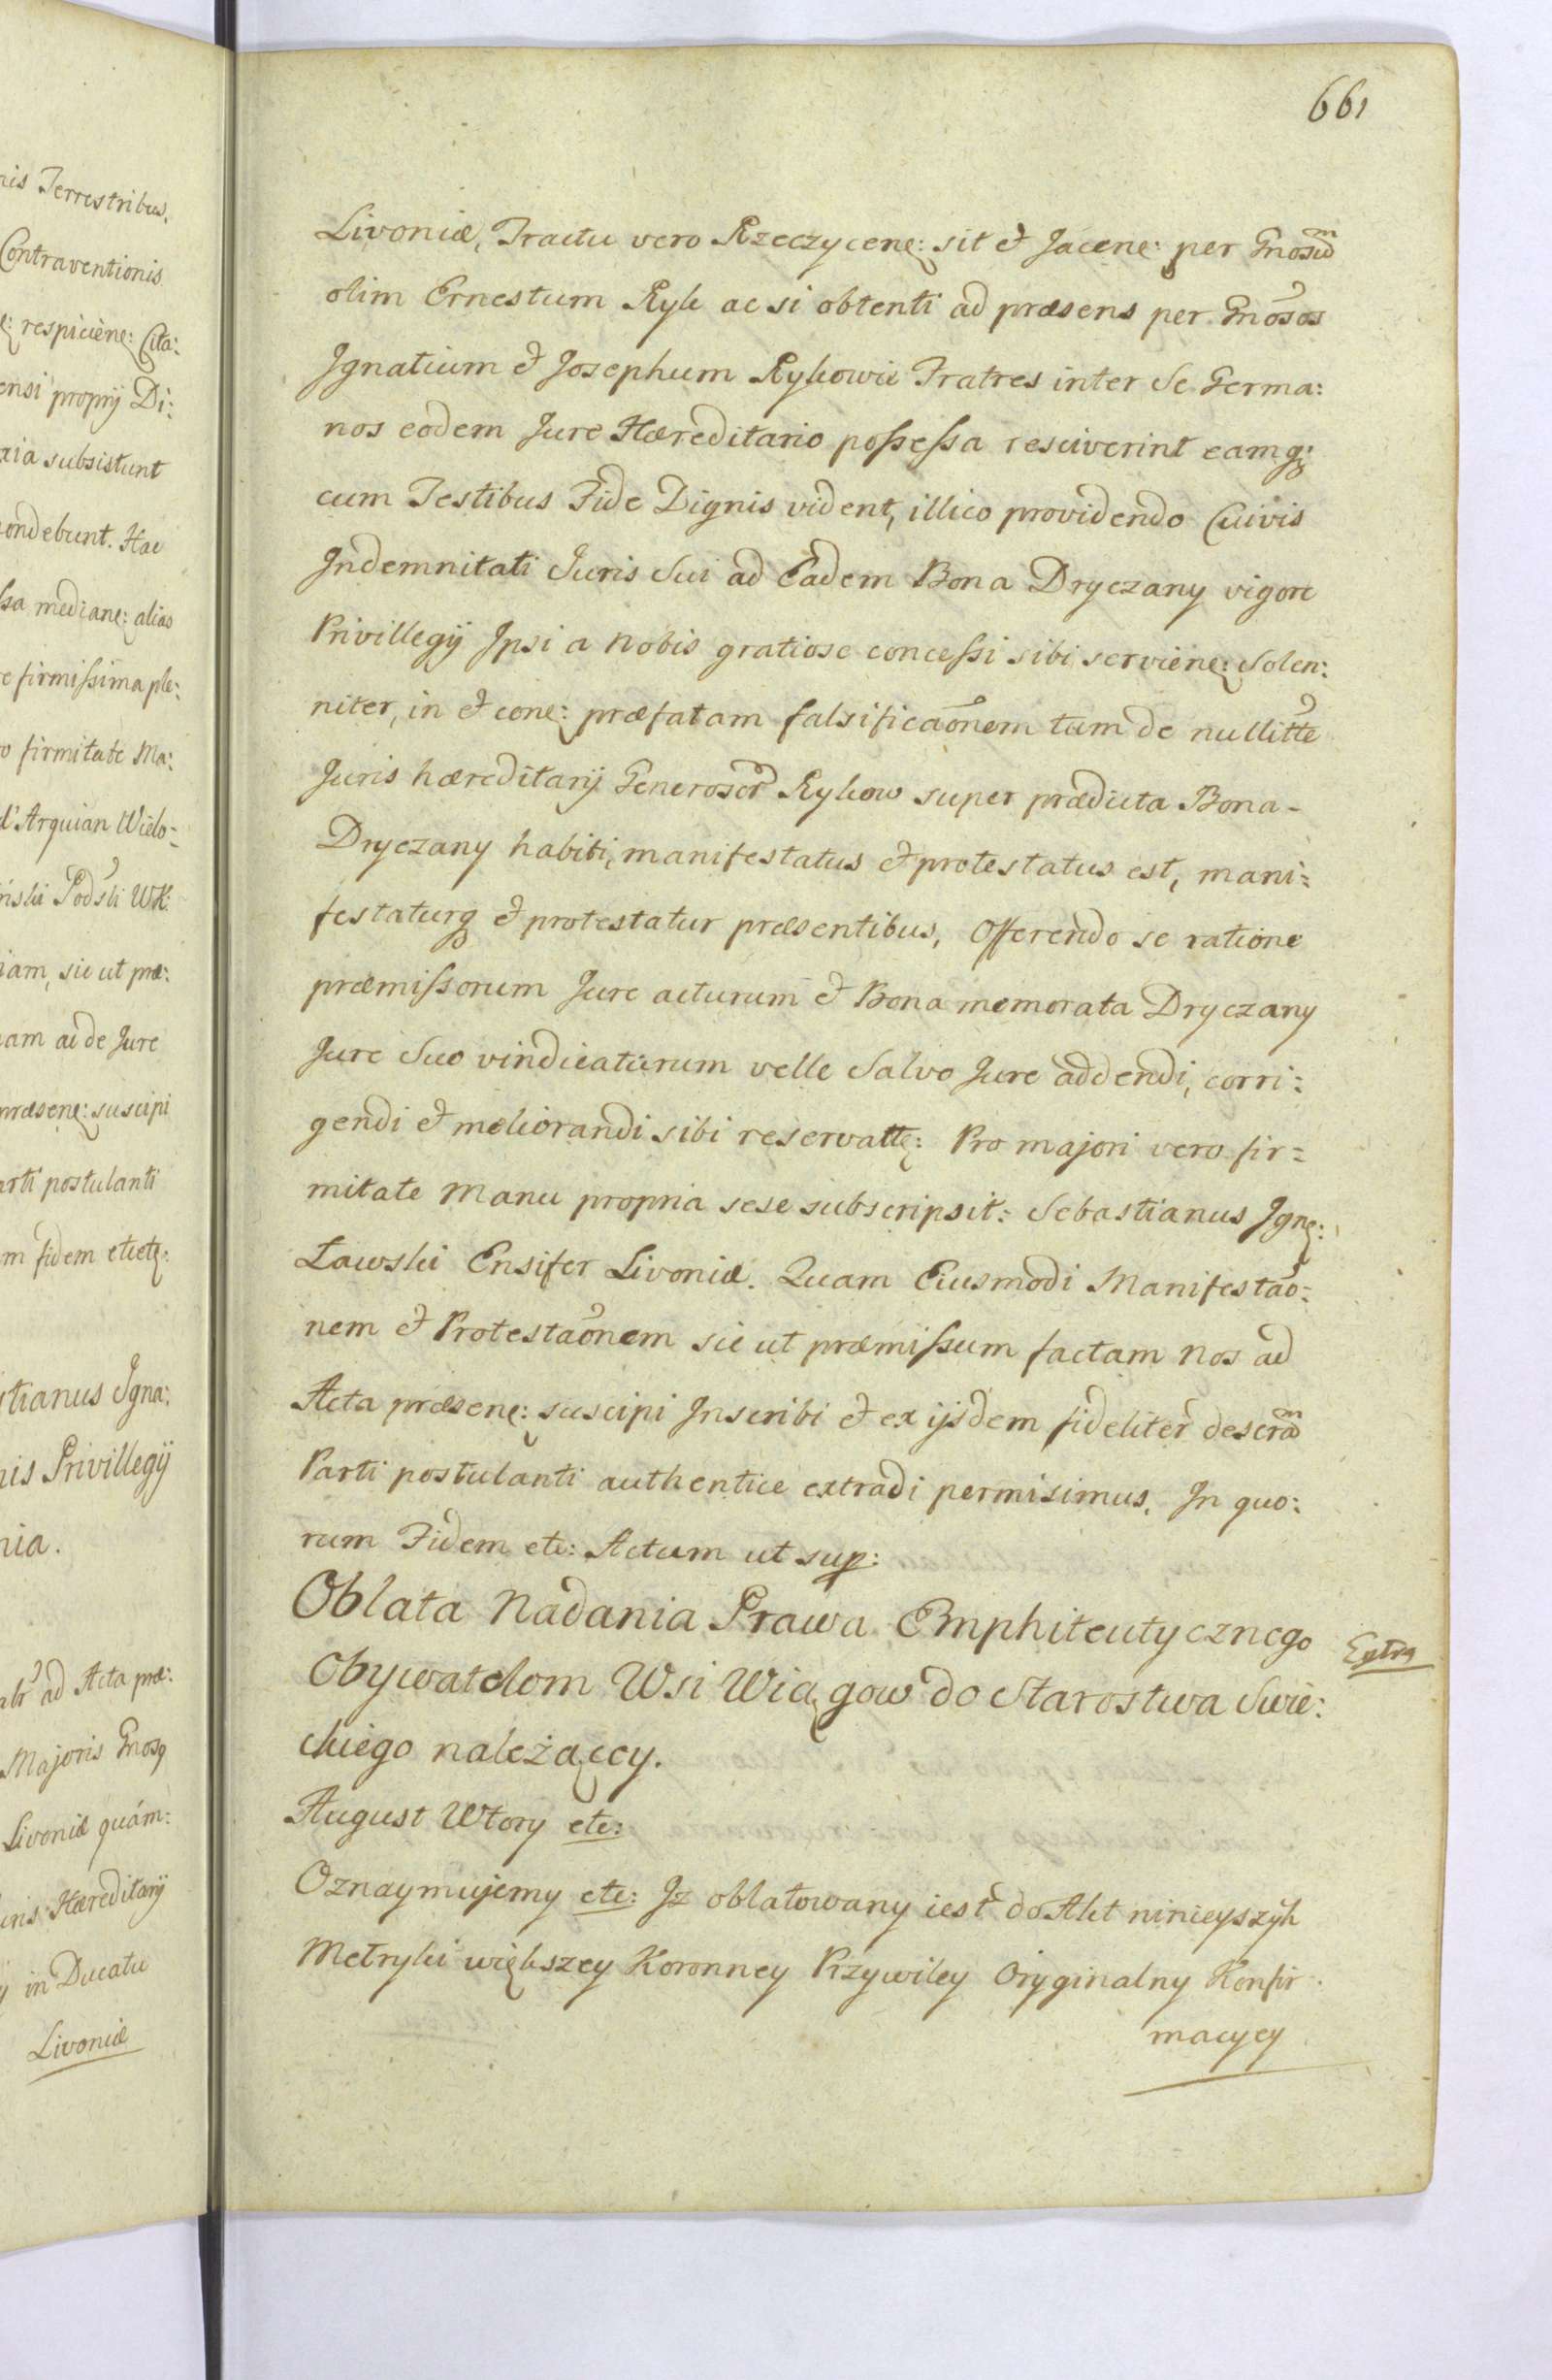 nis Terrestribus.
Contraventionis
respiciēne: Cita:
ensi proprij Di:
subsistunt
ondebunt. Hac
ssa mediane: alias
e firmissima ple:
o firmitate Ma:
d'Arquian Wielo-
ński Podsli WK:
iam, sic ut præ:
am ac de Jure
præsene: suscipi
arti postulanti
m fidem etcetę:
stianus Jgna:
nis Privillegij
nia.
ad Acta præ:
Majoris Gnosq
Livoniæ quám:
Juris Hæreditarij
y in Ducatu
Livoniæ
661
Livoniæ, Tractu vero Rzeczycenę: sit et Jacenę: per Gnosum
olim Ernestum Ryk ac si obtenti ad præsens per Gnosos
Jgnatium et Josephum Rykowie Fratres inter Se Germa:
nos eodem Jure Hæreditario possessa resciverint eamq;
cum Testibus Fide Dignis vident, illico providendo Cuivis
Jndemnitati Juris Sui ad Eadem Bona Dryczany vigore
Privillegij Jpsi a Nobis gratiose concessi sibi servienę: Solen:
niter, in et conę: præfatam falsificaōnem tum de nullitte
Juris hæreditarij Generosor Rykow super prædicta Bona-
Dryczany habiti, manifestatus et protestatus est, mani:
festaturq et protestatur præsentibus, Offerendo se ratione
præmissorum Jure acturum et Bona memorata Dryczany
Jure Suo vindicaturum velle Salvo Jure addendi, corri:
gendi et meliorandi sibi reservattę: Pro majori vero fir=
mitate Manu propria sese subscripsit: Sebastianus Jgnę:
Ławski Ensifer Livoniæ. Quam Eiusmodi Manifestaō:
nem et Protestaōnem sic ut præmissum factam Nos ad
Acta præsenę: suscipi Jnscribi et ex ijsdem fideliter descram
Parti postulanti authentice extradi permisimus. Jn quo:
rum Fidem etc: Actum ut sup:
Oblata Nadania Prawa Emphiteutycznego
Extra
Obywatelom Wsi Wiągow do Starostwa Swie:
ckiego należącey.
August Wtory etc:
Oznaymujemy etc: Jz oblatowany iest do Akt ninieyszych
Metryki większey Koronney Przywiley Oryginalny Konfir
macycy